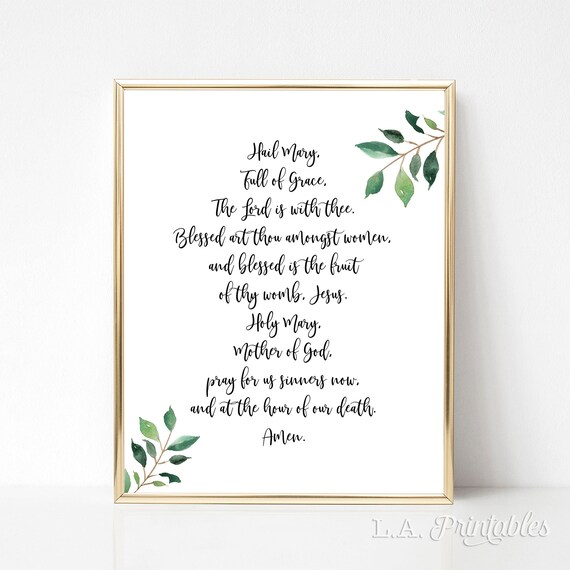 Hail Mary,
Full of Grace,
The Lord is with thee.
Blessed art thou amongst women,
and blessed is the fruit
of thy womb, Jesus.
Holy Mary,
Mother of God,
pray for us sinners now,
and at the hour of our death.
Amen.
L.A. Printables